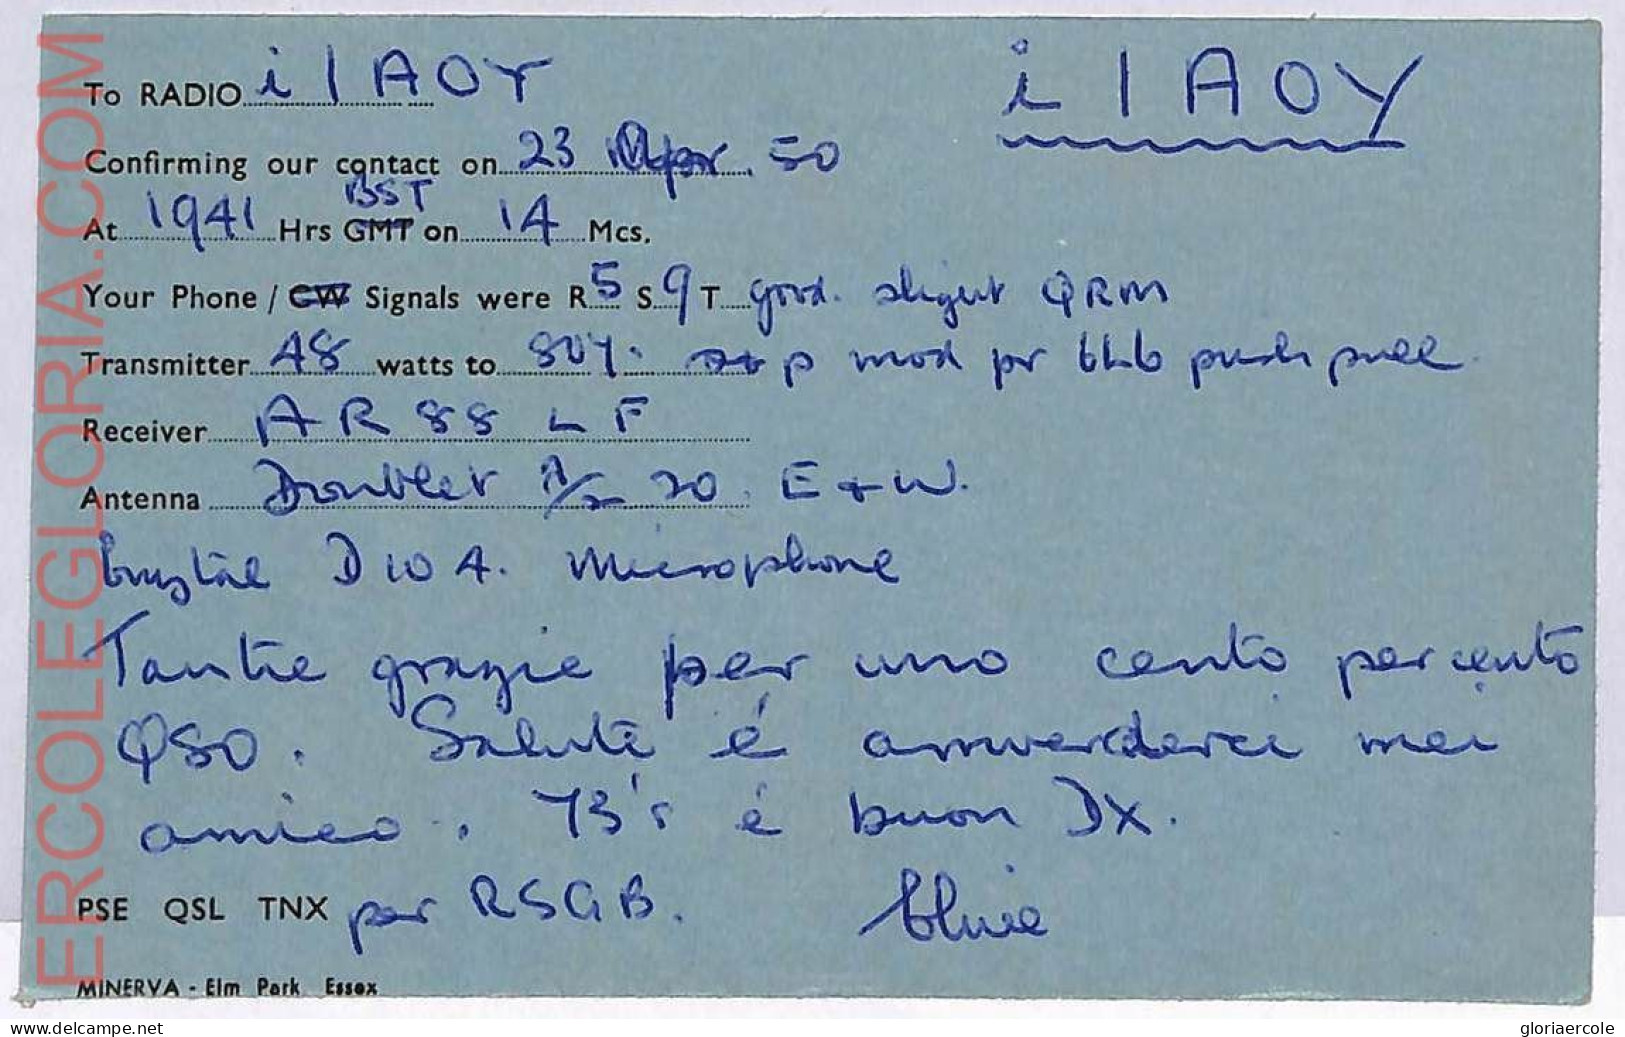 To RADIO i 1 A O Y
i 1 A O Y
Confirming our contact on 23 Apr. 50
BST
At 1941 Hrs GMT on 14 Mcs.
Your Phone / CW Signals were R 5 S 9 T good. slight QRM
Transmitter 48 watts to 807. p mod pr 6L6 push pull
Receiver AR 88 L F
Antenna Doublet λ/2 20. E + W.
D 104. Microphone
Tantie grazie per uno cento per cento
QSO. Saluti é arrivederci mei
amico. 73's é buon DX.
PSE QSL TNX per RSGB.
MINERVA - Elm Park Essex
ERCOLEGLORIA.COM
www.delcampe.net
gloriaercole